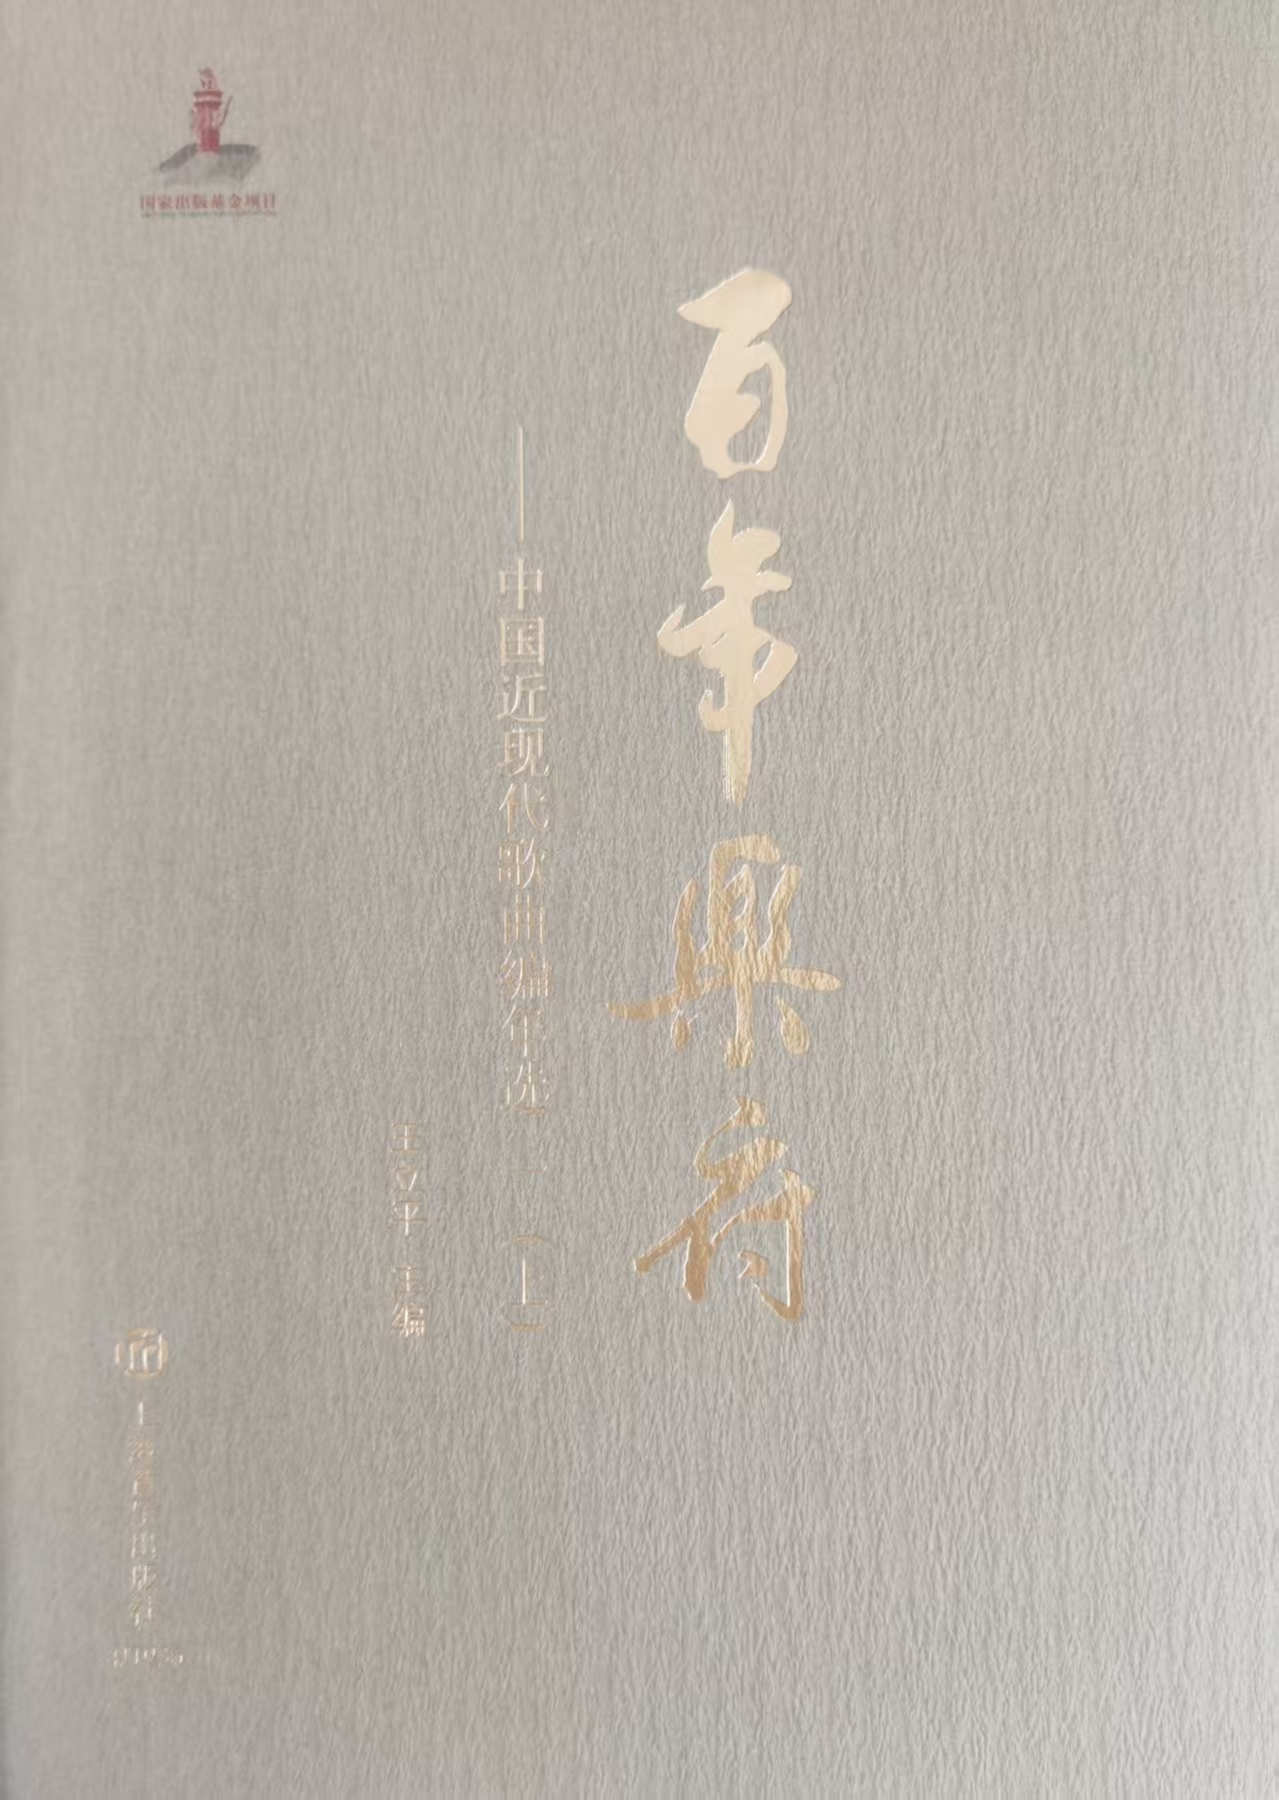 国家出版基金项目
百年樂府
——中国近现代歌曲编年选 一（上）
王立平 主编
上海音乐出版社